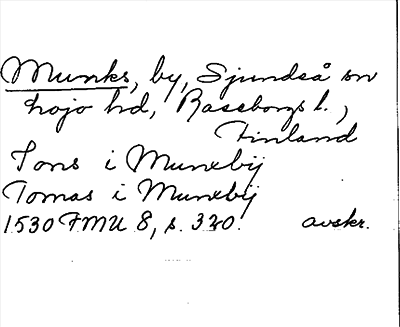 Munks, by, Sjundså sn
hojo hd, Raseborgs l.,
Finland
Jons i Munxbÿ
Tomas i Munxbÿ
1530 FMU 8, s. 320. avskr.